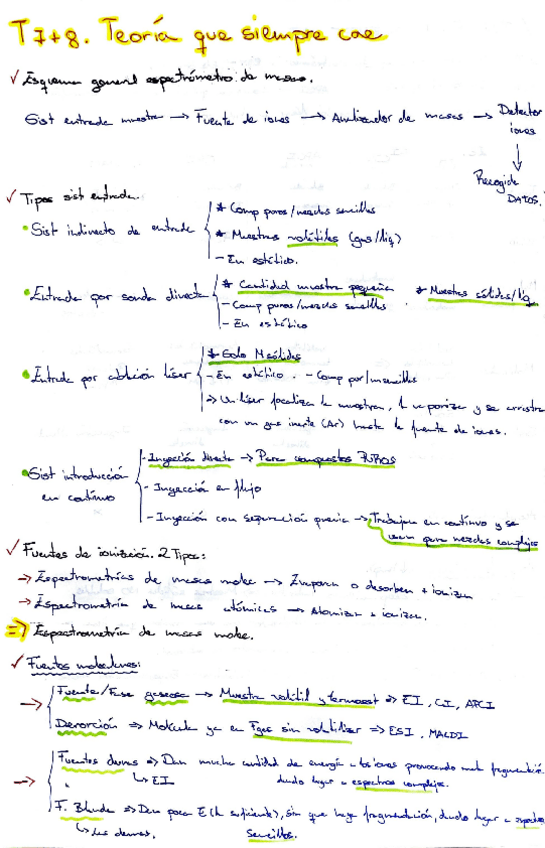 T7+8. Teoría que siempre cae
✓ Esquema general espectrómetro de masas.
Sist entrada muestra → Fuente de iones → Analizador de masas → Detector iones
↓
Recogida DATOS.
✓ Tipos sist entrada.
• Sist indirecto de entrada
* Comp puros/mezclas sencillas
* Muestras volátiles (gas/liq)
- En estático.
• Entrada por sonda directa
* Cantidad muestra pequeña * Muestras sólidas/liq
- Comp puros/mezclas sencillas
- En estático
• Entrada por ablación láser
* Solo M sólidas
- En estático. - Comp por/m sencillas
⇒ Un láser focaliza la muestra, la vaporiza y se arrastra
con un gas inerte (Ar) hasta la fuente de iones.
• Sist introducción en continuo
- Inyección directa → Para compuestos PUROS
- Inyección en flujo
- Inyección con separación previa → Trabajan en continuo y se
usan para mezclas complejas
✓ Fuentes de ionización. 2 Tipos:
→ Espectrometrías de masas molec → Evaporan o desorben + ionizan
→ Espectrometría de masas atómicas → Atomizan + ionizan.
⇒ Espectrometría de masas molec.
✓ Fuentes moleculares:
→ Fuente/Fase gaseosa → Muestra volátil y termoest ⇒ EI, CI, APCI
Desorción ⇒ Molécula ya en Fgas sin volatilizar ⇒ ESI, MALDI
→ Fuentes duras ⇒ Dan mucha cantidad de energía a los iones provocando mucha fragmentación
↳ EI dando lugar a espectros complejos.
F. Blanda ⇒ Dan poca E (la suficiente), sin que haya fragmentación, dando lugar a espectros
↳ Las demás. sencillos.